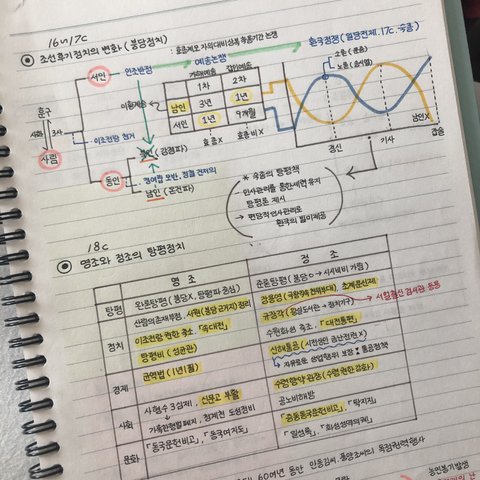 16~17C
◉ 조선후기정치의 변화 (붕당정치)
: 효종계모 자의대비상복 복제기간 논쟁
환국정쟁 (일당전제. 17c. 숙종)
예송논쟁
서인 인조반정
기해예송 갑인예송
1차 2차
남인 3년 1년
서인 1년 9개월
효종X 효종비X
이황계승
훈구
사화 3사
사림
이조전랑 천거
동인
북인 (강경파)
정여립 모반, 정철 건저의
남인 (온건파)
소론
노론 (송시열)
남인X
경신 기사 갑술
* 숙종의 탕평책
- 인사관리를 통한세력유지
탕평론 제시
→ 편당적인사관리로
환국의 빌미제공
18C
◉ 영조와 정조의 탕평정치
영조 정조
탕평 완론탕평 (붕당X, 탕평파 중심) 준론탕평 (붕당O → 시시비비 가림)
정치 산림의존재부정, 서원(붕당 근거지) 정리 장용영 (국왕직속 친위부대), 초계문신제
이조전랑 권한 축소 「속대전」 규장각 → 서얼출신 검서관 등용
탕평비 (성균관) 수원화성 축조, 「대전통편」
경제 균역법 (1년1필) 신해통공 (시전상인 금난전권X)
→ 자유로운 상업행위 보장 : 통공정책
사회 사형수 3심제, 신문고 부활 수령향약 관장 (수령 권한강화)
가혹한형벌폐지, 청계천 도성정비 공노비해방
문화 「동국문헌비고」 「동국여지도」 「증동동국문헌비고」, 「탁지지」
「일성록」, 「화성성역의궤」
60여년 동안 안동김씨 풍양조씨의 독점권력행사
농민봉기발생